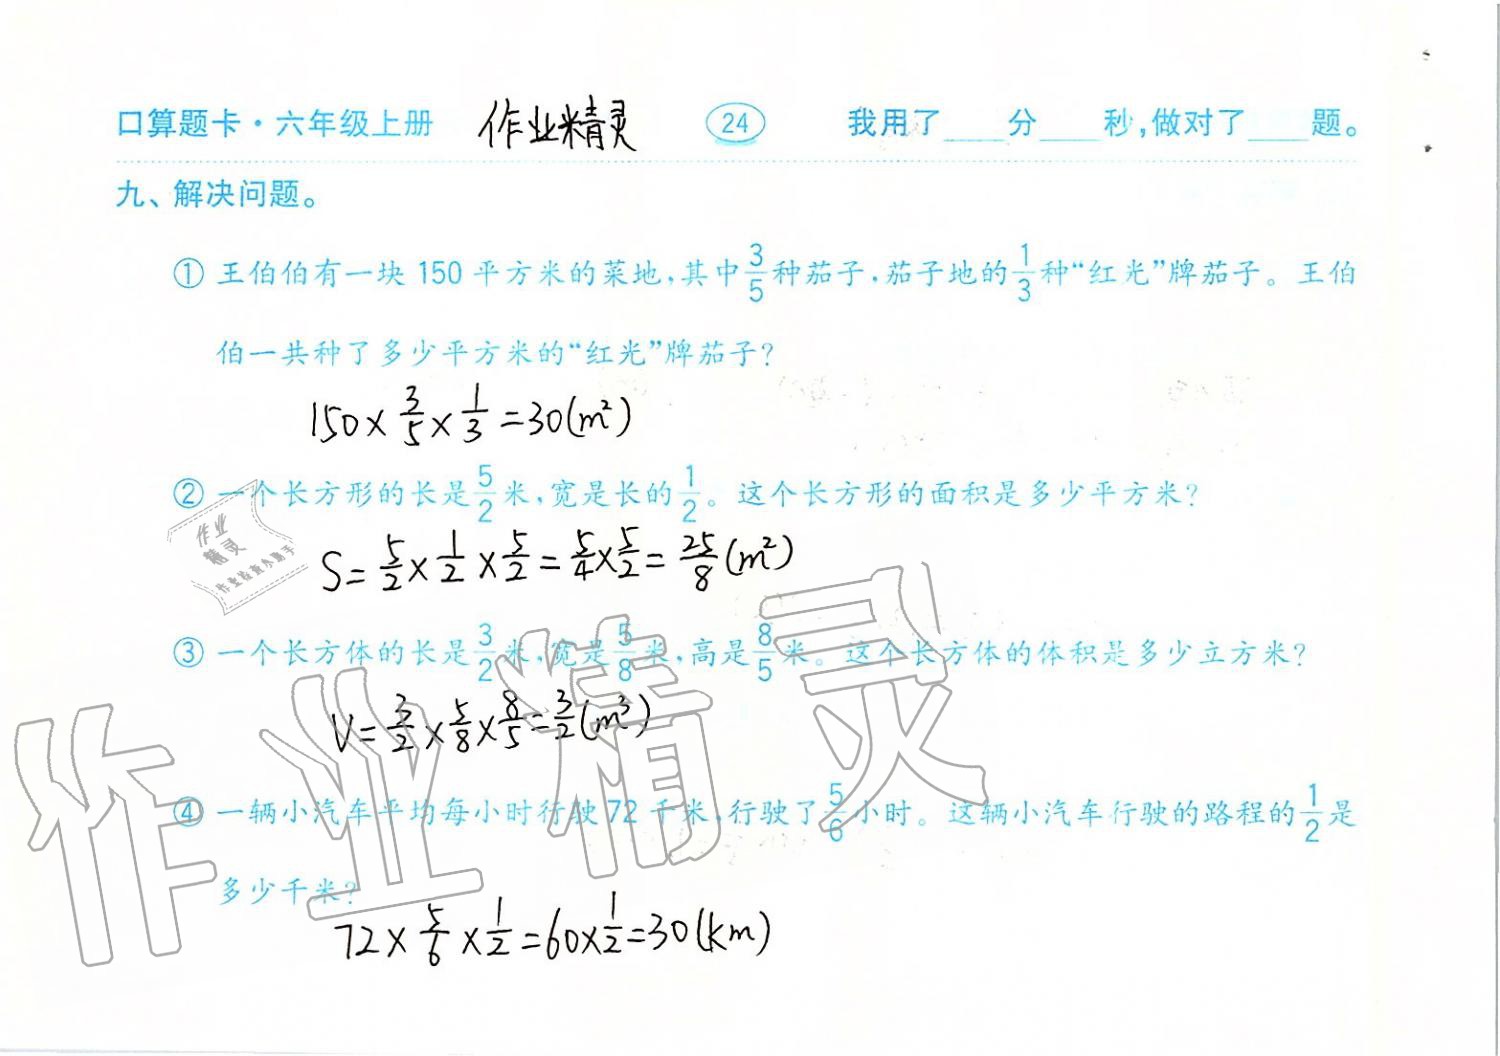 口算题卡·六年级上册 作业精灵 24 我用了____分____秒,做对了____题。
九、解决问题。
① 王伯伯有一块150平方米的菜地,其中3/5种茄子,茄子地的1/3种“红光”牌茄子。王伯
伯一共种了多少平方米的“红光”牌茄子?
150×3/5×1/3=30(m²)
② 一个长方形的长是5/2米,宽是长的1/2。这个长方形的面积是多少平方米?
作业
精灵
作业检查小助手
S=5/2×1/2×5/2=5/4×5/2=25/8(m²)
③ 一个长方体的长是3/2米,宽是5/8米,高是8/5米。这个长方体的体积是多少立方米?
V=3/2×5/8×8/5=3/2(m³)
作业精灵
④ 一辆小汽车平均每小时行驶72千米,行驶了5/6小时。这辆小汽车行驶的路程的1/2是
多少千米?
72×5/6×1/2=60×1/2=30(km)